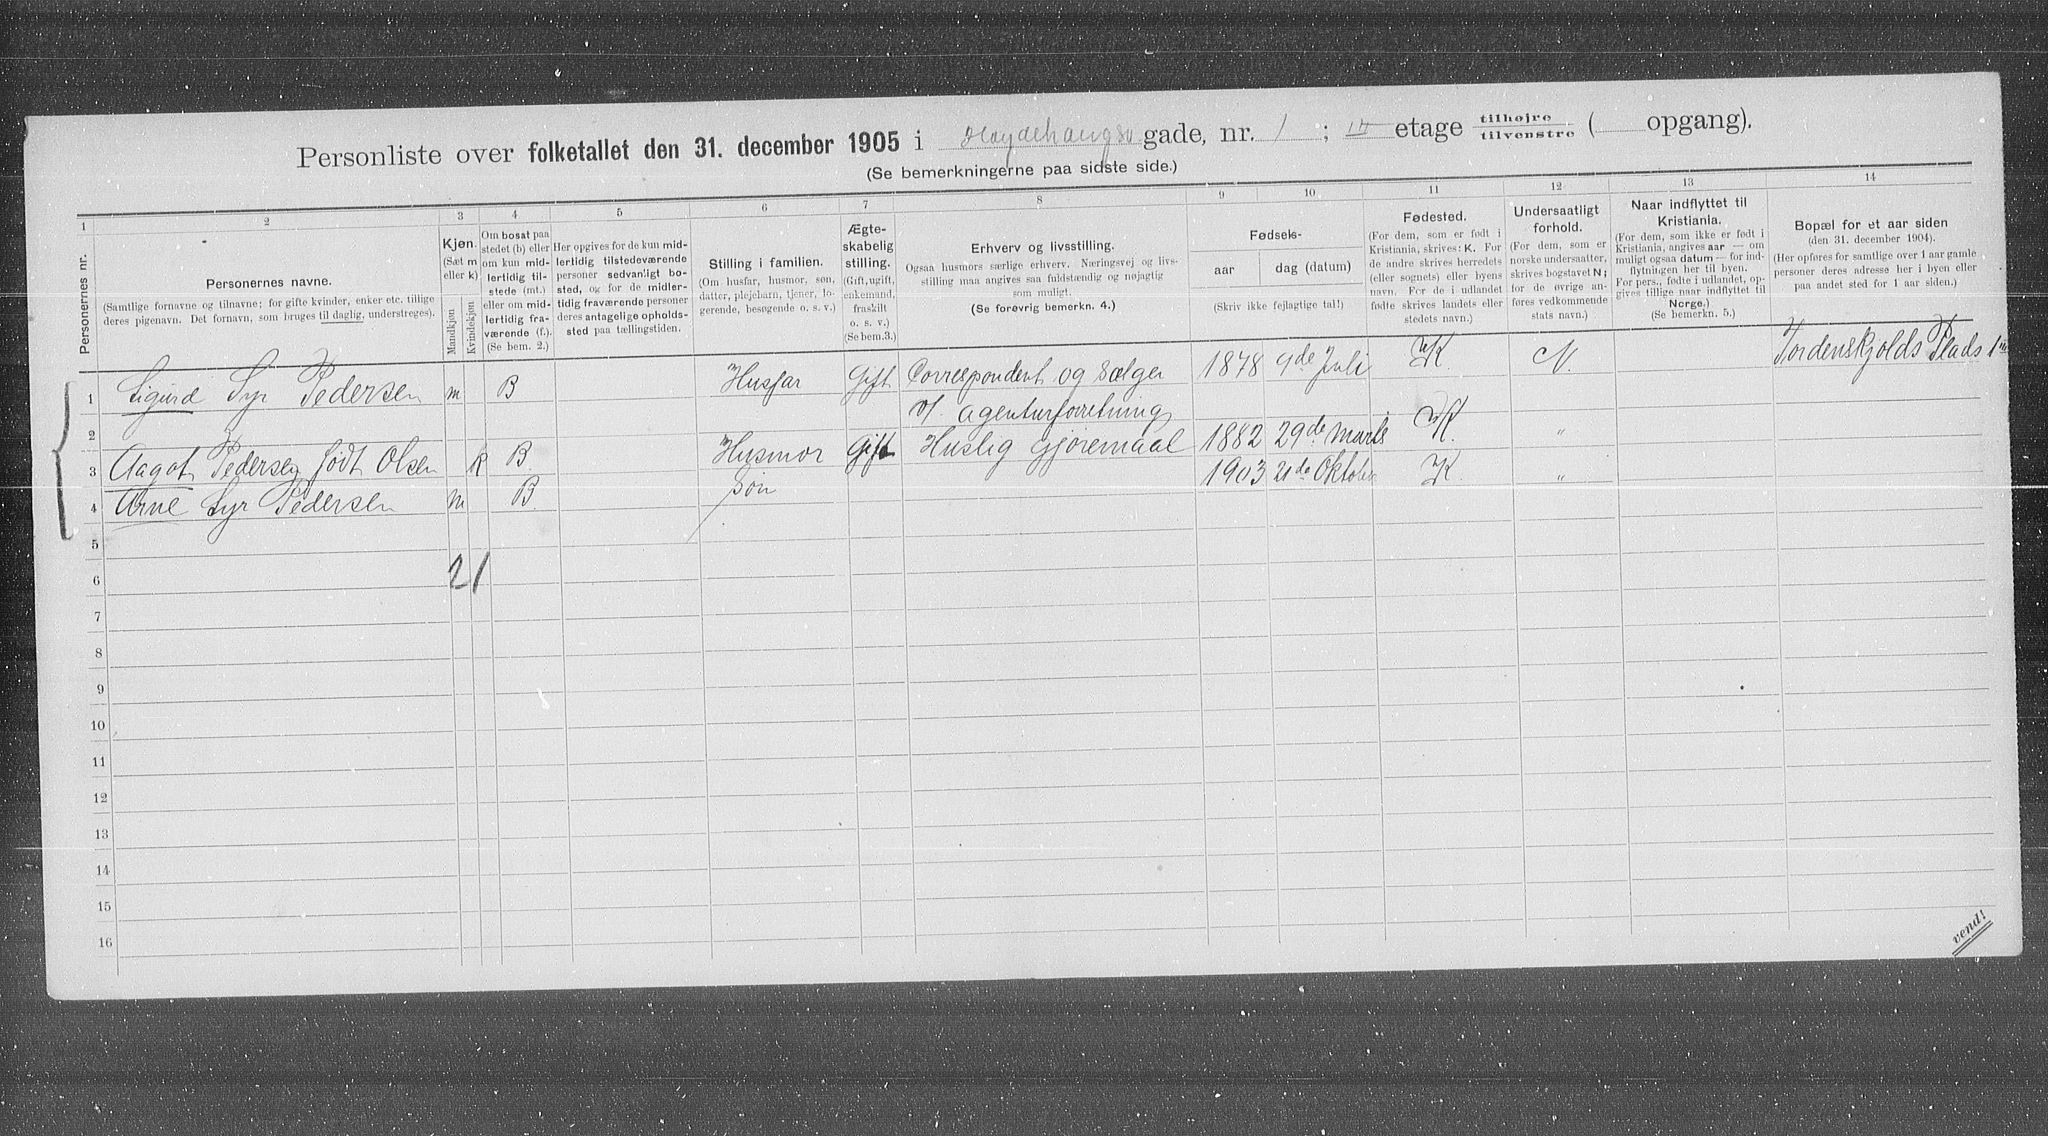 Personliste over folketallet den 31. december 1905 i Haydehaugsv gade, nr. 1 ; III etage tilhøjre tilvenstre ( opgang).
(Se bemerkningerne paa sidste side.)
1 2 3 4 5 6 7 8 9 10 11 12 13 14
Personernes nr.
Personernes navne.
(Samtlige fornavne og tilnavne; for gifte kvinder, enker etc. tillige
deres pigenavn. Det fornavn, som bruges til daglig, understreges).
Kjøn.
(Sæt m
eller k)
Mandkjøn
Kvindekjøn
Om bosat paa
stedet (b) eller
om kun mid-
lertidig til-
stede (mt.)
eller om mid-
lertidig fra-
værende (f.).
(Se bem. 2.)
Her opgives for de kun mid-
lertidig tilstedeværende
personer sedvanlig bo-
sted, og for de midler-
tidig fraværende personer
deres antagelige opholds-
sted paa tællingstiden.
Stilling i familien.
(Om husfar, husmor, søn,
datter, plejebarn, tjener, lo-
gerende, besøgende o. s. v.)
Ægte-
skabelig
stilling.
(Gift, ugift,
enkemand,
fraskilt
o. s. v.)
(Se bem.3.)
Erhverv og livsstilling.
Ogsaa husmors særlige erhverv. Næringsvej og livs-
stilling maa angives saa fuldstændig og nøjagtig
som muligt.
(Se forøvrig bemerkn. 4.)
Fødsels-
aar
dag (datum)
(Skriv ikke fejlagtige tal!)
Fødested.
(For dem, som er født i
Kristiania, skrives: K. For
de andre skrives herredets
(eller sognets) eller byens
navn. For de i udlandet
fødte skrives landets eller
stedets navn.)
Undersaatligt
forhold.
(For dem, som er
norske undersaatter,
skrives bogstavet N;
for de øvrige an-
føres vedkommende
stats navn.)
Naar indflyttet til
Kristiania.
(For dem, som ikke er født i
Kristiania, angives aar — om
muligt ogsaa datum — for ind-
flytningen her til byen.
For pers., fødte i udlandet, op-
gives tillige naar indflyttet til
Norge.)
(Se bemerkn. 5.)
Bopæl for et aar siden
(den 31. december 1904).
(Her opføres for samtlige over 1 aar gamle
personer deres adresse her i byen eller
paa andet sted for 1 aar siden.)
1 Sigurd Syr Pedersen m B Husfar Gift Correspondent og Sælger 1878 9de Juli K. N. Tordenskjolds Plads 1
2 v/ agenturforretning
3 Aagot Pedersen født Olsen k B Husmor Gift Huslig gjøremaal 1882 29de Marts K. "
4 Arne Syr Pedersen m B. Søn 1903 21de Oktober K. "
5
6 2 1
7
8
9
10
11
12
13
14
15
16
vend!